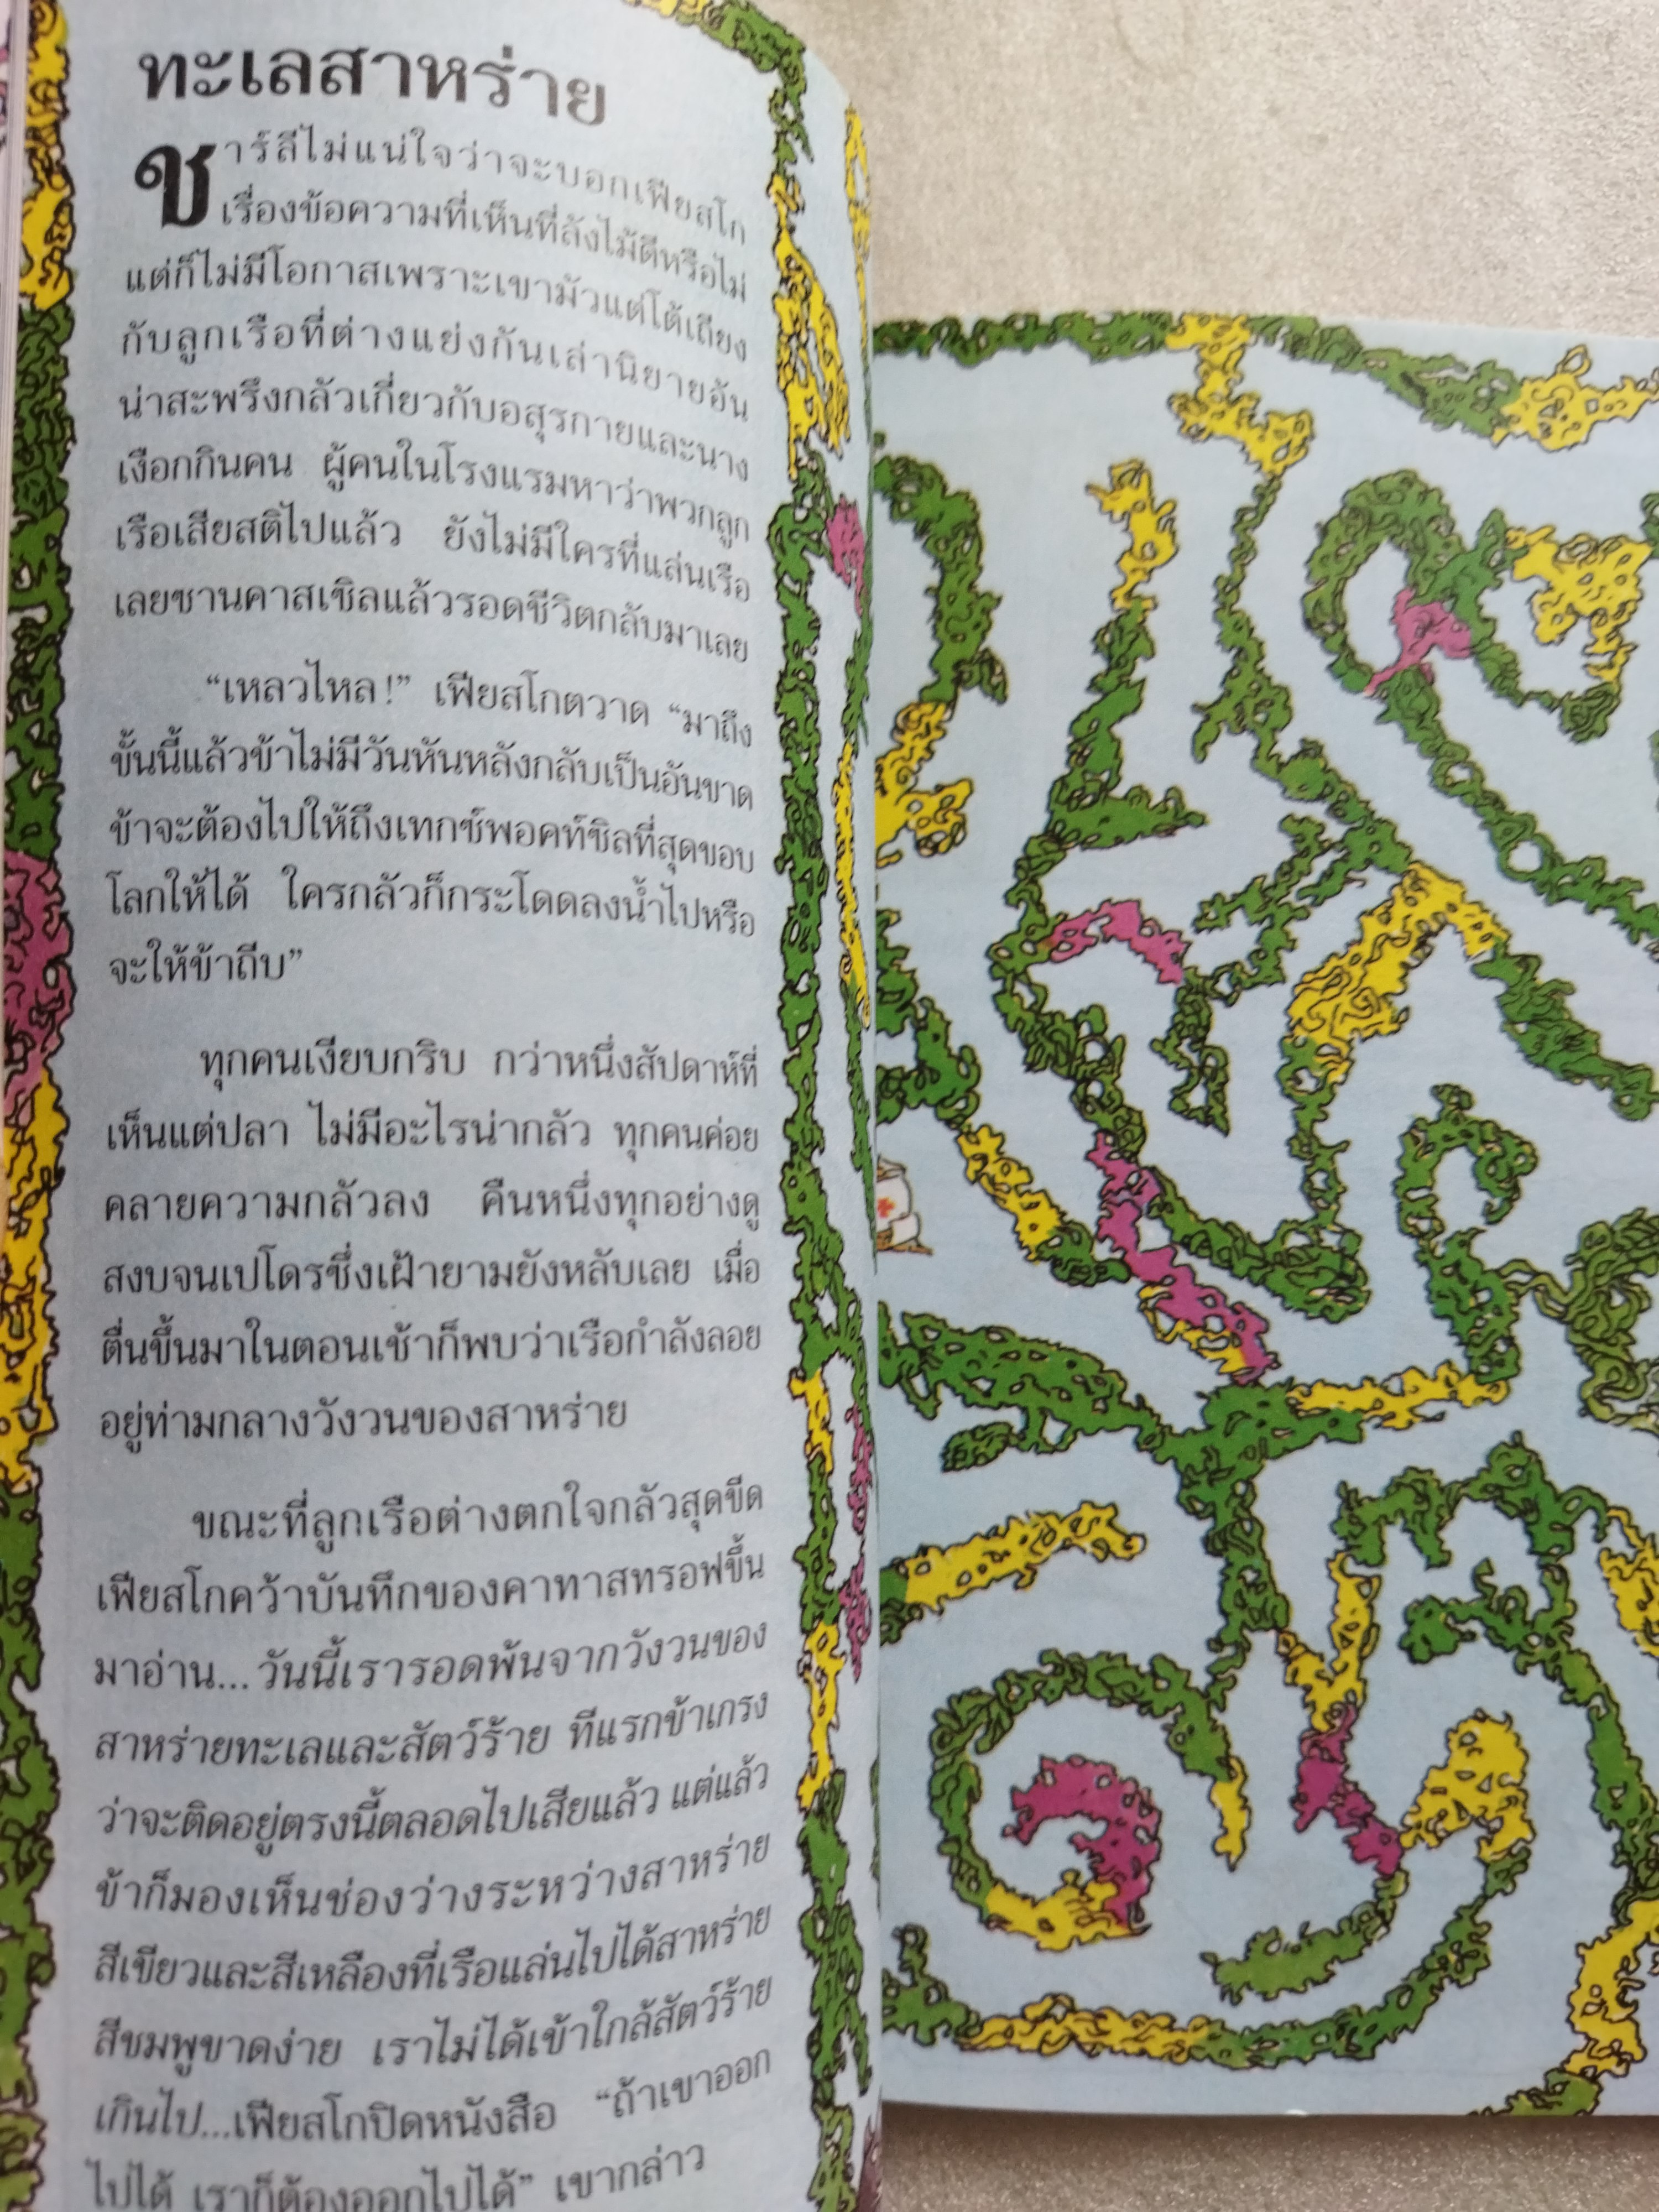 ทะเลสาหร่าย
ชาร์ลีไม่แน่ใจว่าจะบอกเฟียสโก
เรื่องข้อความที่เห็นที่ลังไม้ดีหรือไม่
แต่ก็ไม่มีโอกาสเพราะเขามัวแต่โต้เถียง
กับลูกเรือที่ต่างแย่งกันเล่านิยายอัน
น่าสะพรึงกลัวเกี่ยวกับอสุรกายและนาง
เงือกกินคน ผู้คนในโรงแรมหาว่าพวกลูก
เรือเสียสติไปแล้ว ยังไม่มีใครที่แล่นเรือ
เลยซานคาสเซิลแล้วรอดชีวิตกลับมาเลย
“เหลวไหล!” เฟียสโกตวาด “มาถึง
ขั้นนี้แล้วข้าไม่มีวันหันหลังกลับเป็นอันขาด
ข้าจะต้องไปให้ถึงเทกซ์พอคท์ซิลที่สุดขอบ
โลกให้ได้ ใครกลัวก็กระโดดลงน้ำไปหรือ
จะให้ข้าถีบ”
ทุกคนเงียบกริบ กว่าหนึ่งสัปดาห์ที่
เห็นแต่ปลา ไม่มีอะไรน่ากลัว ทุกคนค่อย
คลายความกลัวลง คืนหนึ่งทุกอย่างดู
สงบจนเปโดรซึ่งเฝ้ายามยังหลับเลย เมื่อ
ตื่นขึ้นมาในตอนเช้าก็พบว่าเรือกำลังลอย
อยู่ท่ามกลางวังวนของสาหร่าย
ขณะที่ลูกเรือต่างตกใจกลัวสุดขีด
เฟียสโกคว้าบันทึกของคาทาสทรอฟขึ้น
มาอ่าน...วันนี้เรารอดพ้นจากวังวนของ
สาหร่ายทะเลและสัตว์ร้าย ทีแรกข้าเกรง
ว่าจะติดอยู่ตรงนี้ตลอดไปเสียแล้ว แต่แล้ว
ข้าก็มองเห็นช่องว่างระหว่างสาหร่าย
สีเขียวและสีเหลืองที่เรือแล่นไปได้สาหร่าย
สีชมพูขาดง่าย เราไม่ได้เข้าใกล้สัตว์ร้าย
เกินไป...เฟียสโกปิดหนังสือ “ถ้าเขาออก
ไปได้ เราก็ต้องออกไปได้” เขากล่าว